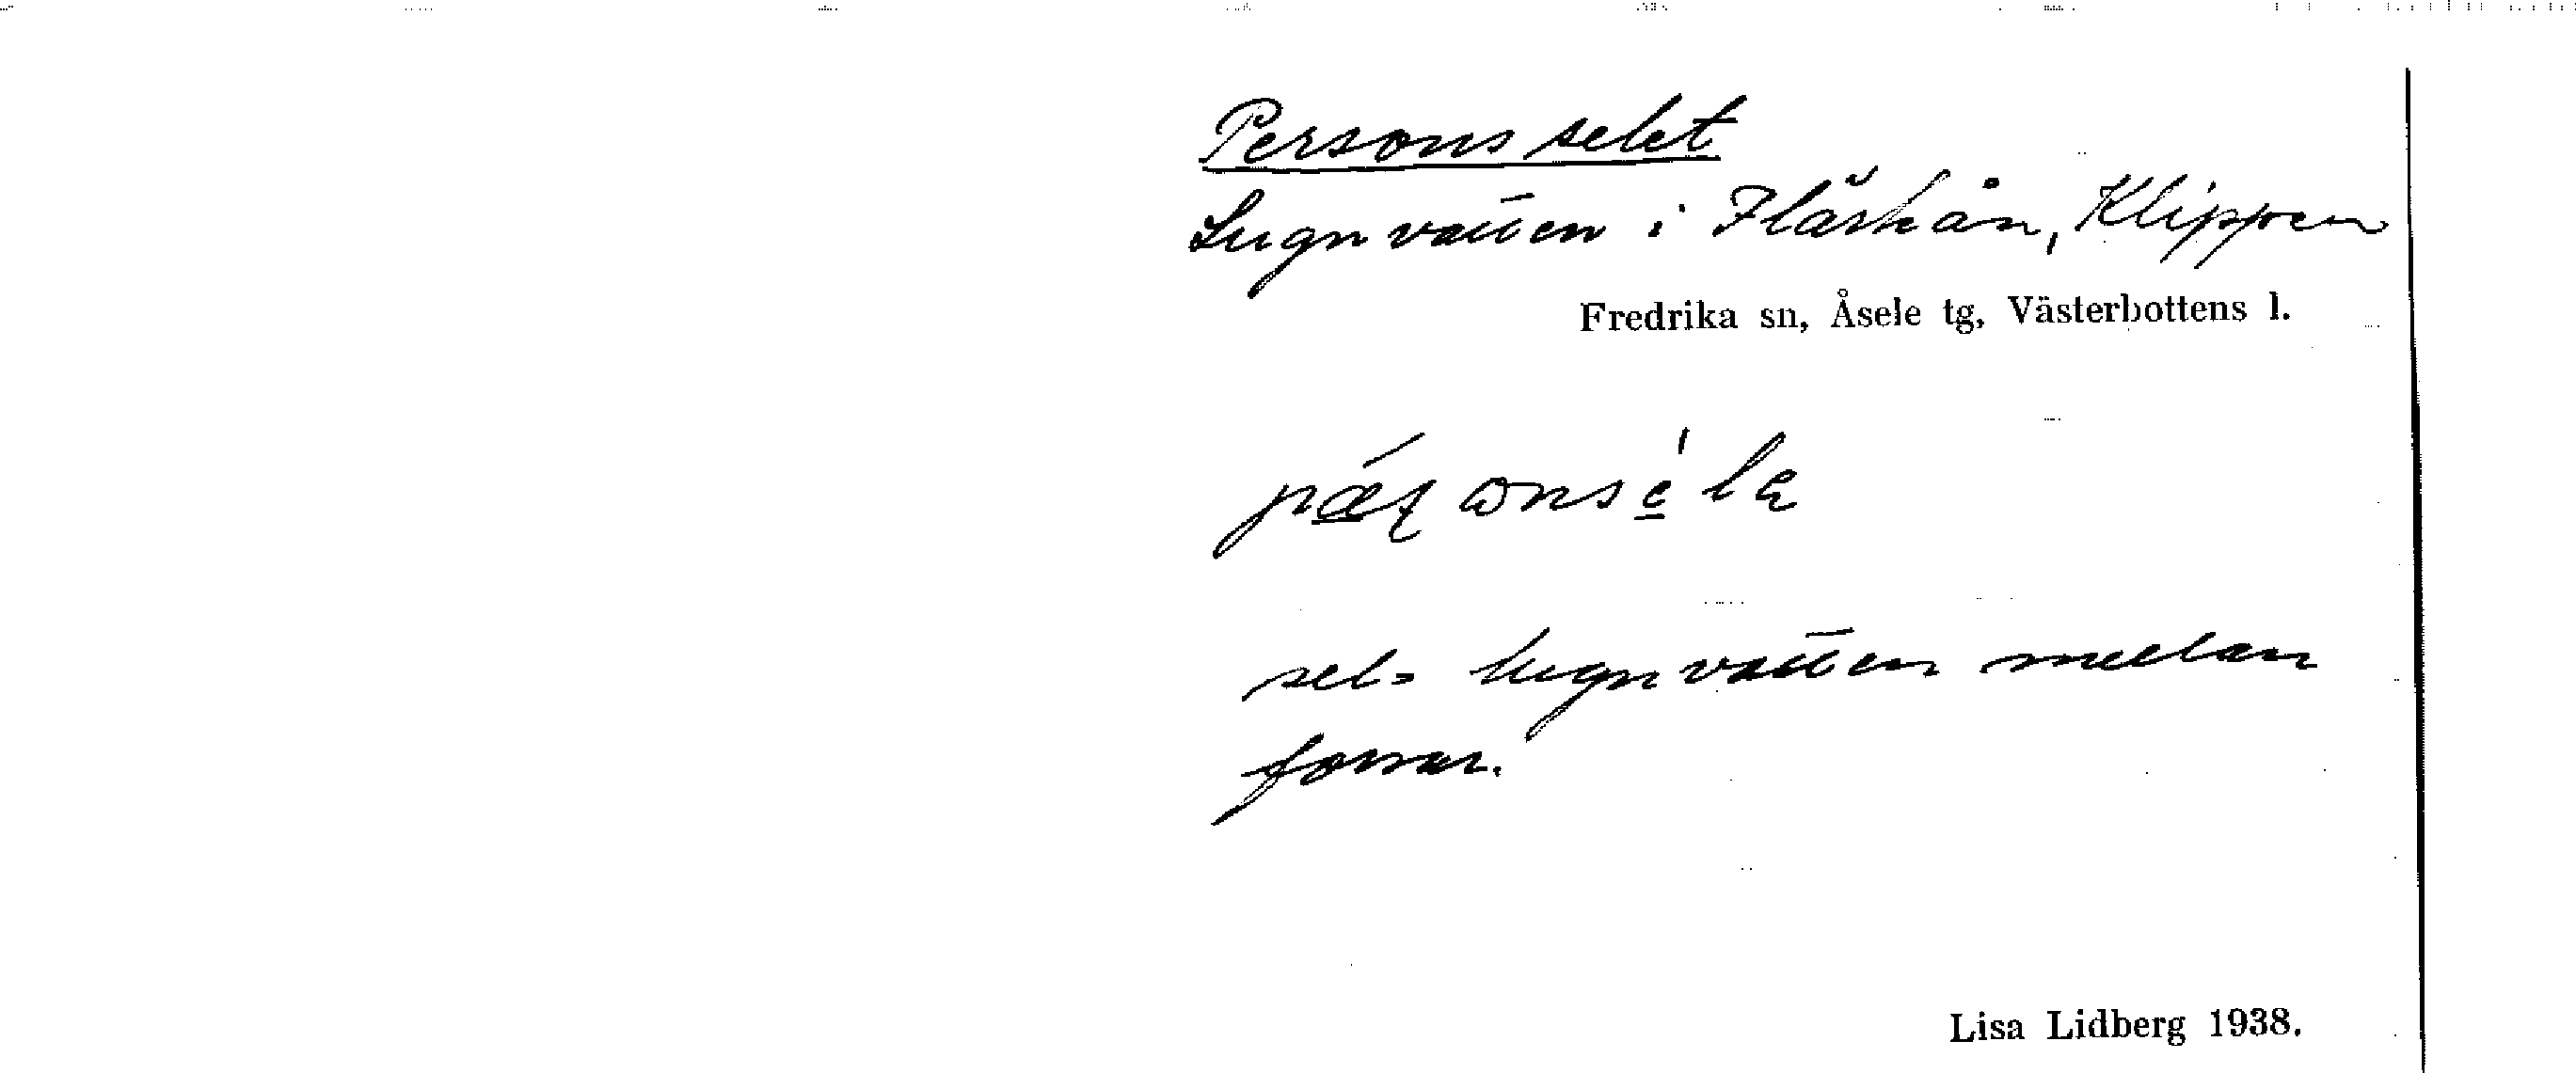 Persons selet
Lugnvatten i Flärkån, Klippen
Fredrika sn, Åsele tg, Västerbottens l.
sel = lugnvatten mellan
forsar.
Lisa Lidberg 1938.